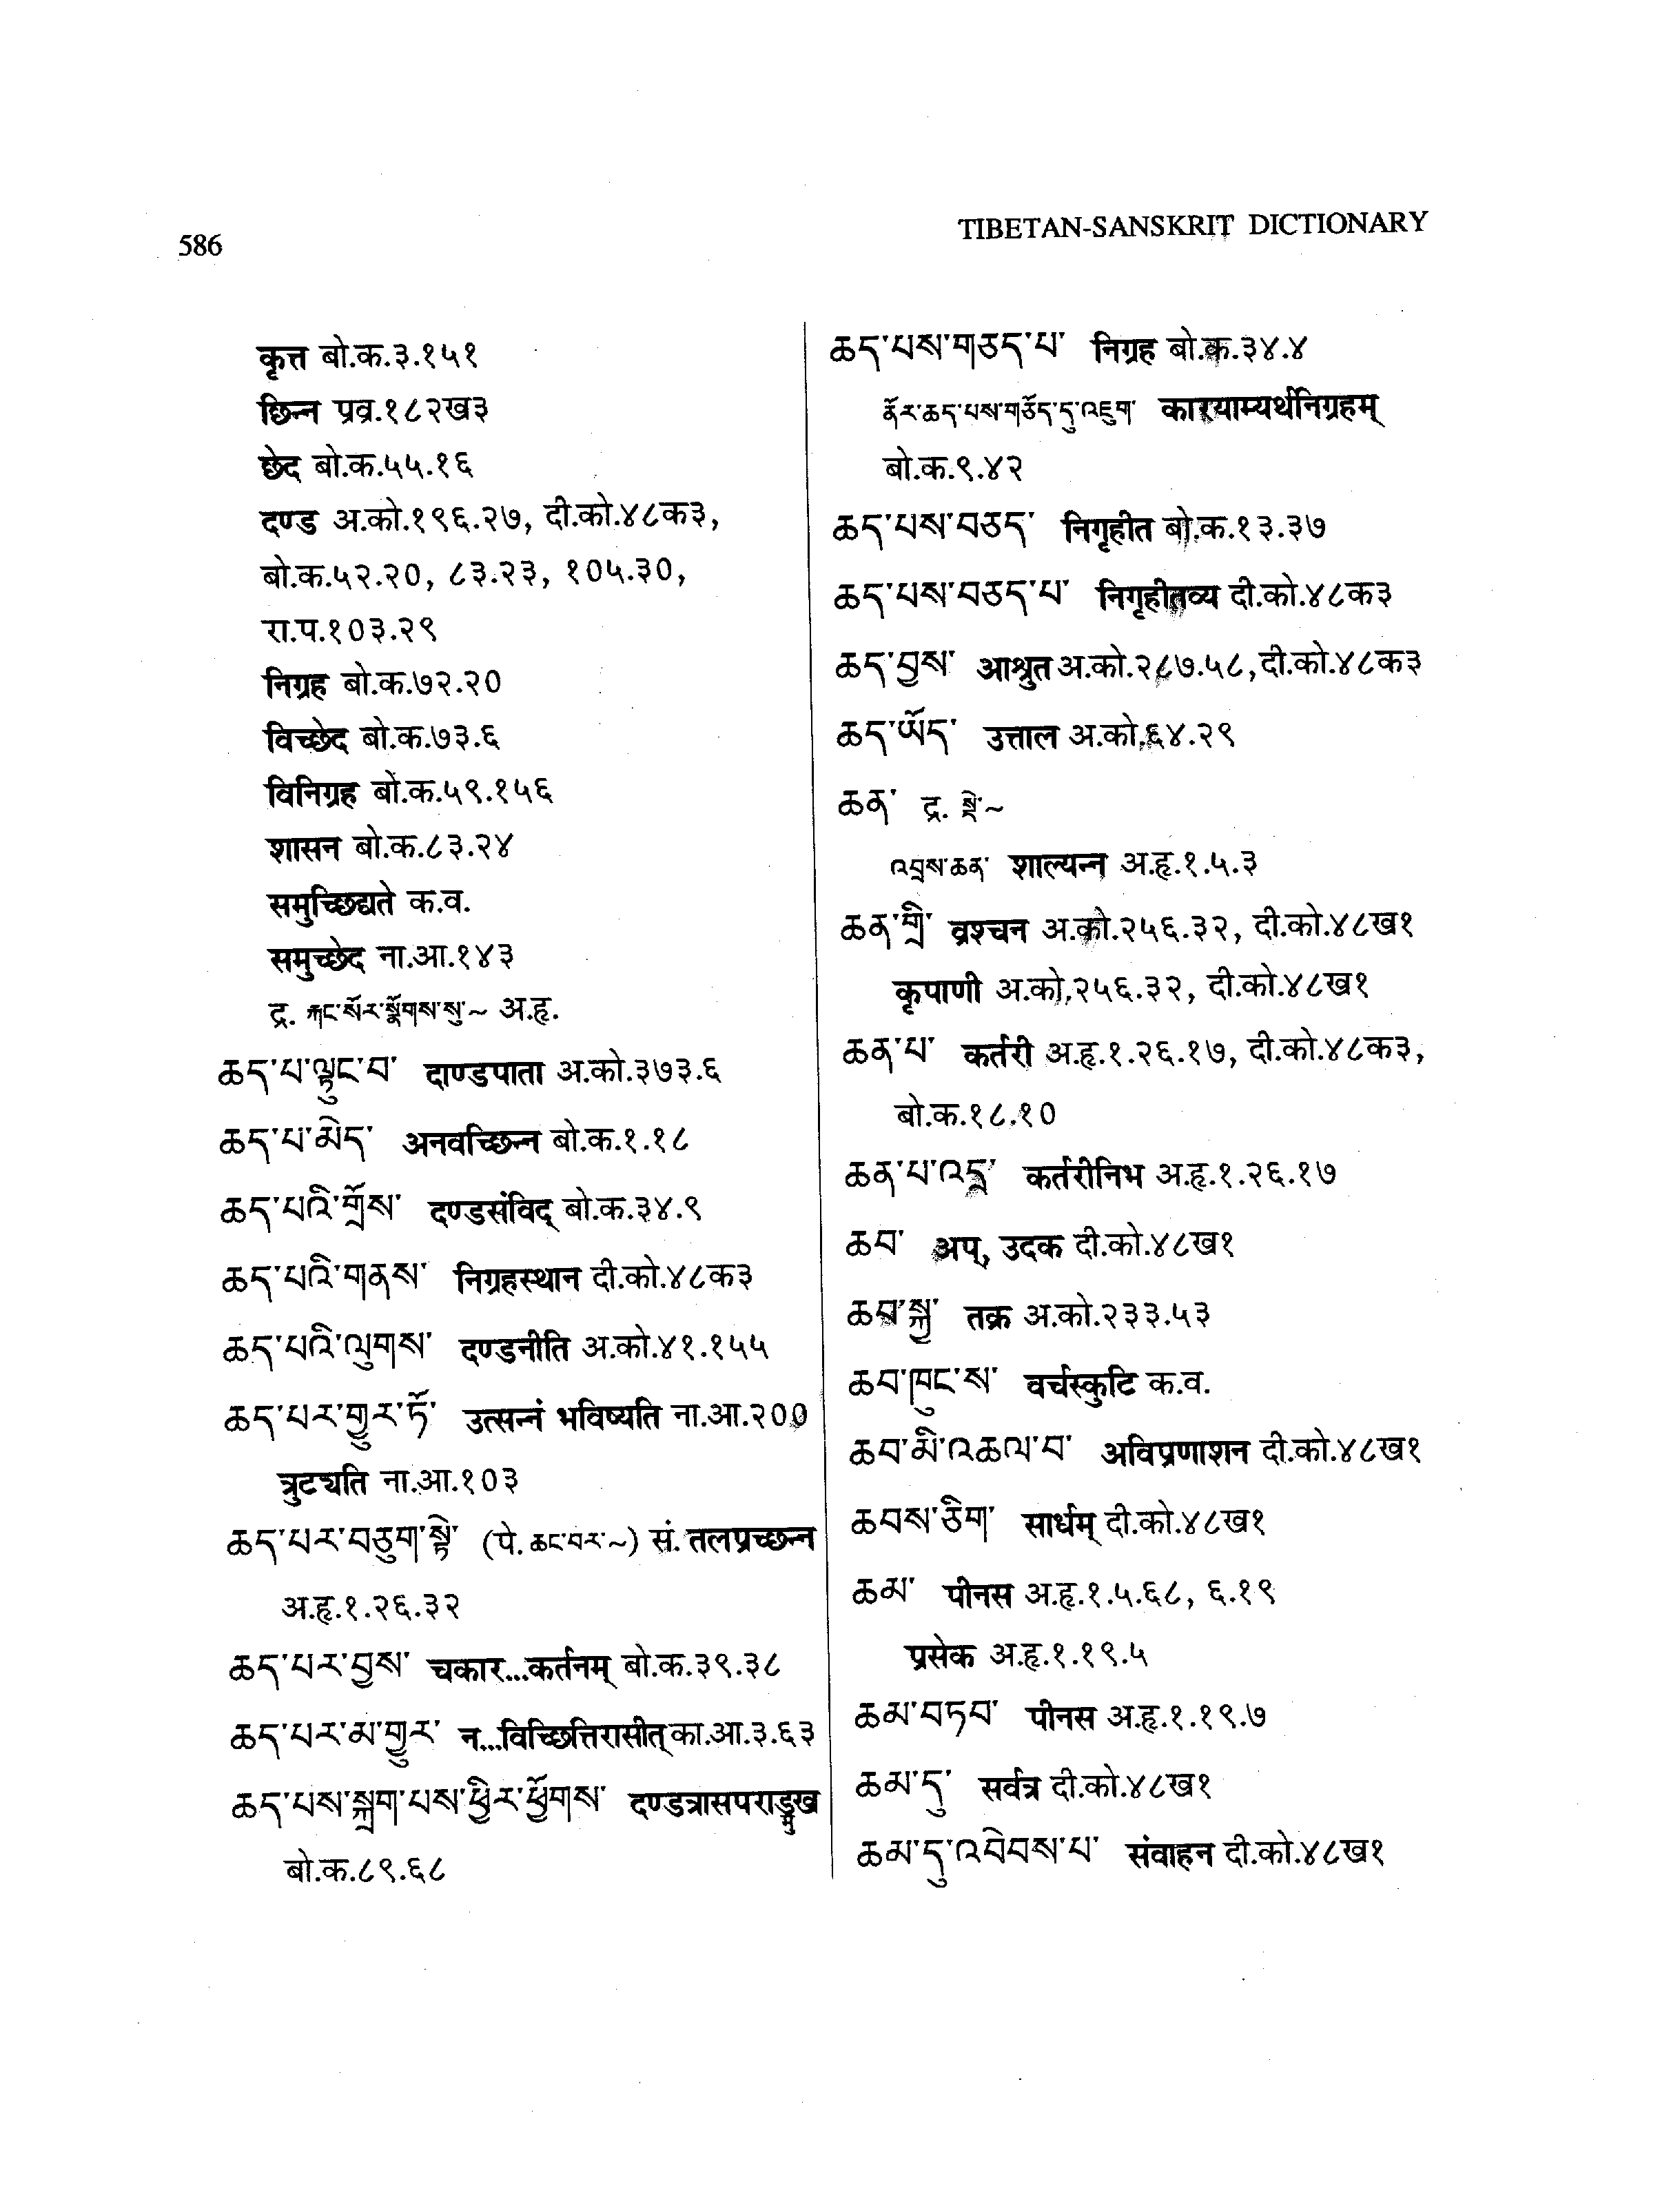 586
TIBETAN-SANSKRIT DICTIONARY
कृत्त बो.क.३.१५१
छिन्न प्रव्र.१८२ख३
छेद बो.क.५५.१६
दण्ड अ.को.१९६.२७, दी.को.४८क३,
बो.क.५२.२०, ८३.२३, १०५.३०,
रा.प.१०३.२९
निग्रह बो.क.७२.२०
विच्छेद बो.क.७३.६
विनिग्रह बो.क.५९.१५६
शासन बो.क.८३.२४
समुच्छिद्यते क.व.
समुच्छेद ना.आ.१४३
द्र. རྐང་སོར་སྣོགས་སུ་~ अ.हृ.
ཆད་པ་ལྟུང་བ་ दाण्डपाता अ.को.३७३.६
ཆད་པ་མེད་ अनवच्छिन्न बो.क.१.१८
ཆད་པའི་གྲོས་ दण्डसंविद् बो.क.३४.९
ཆད་པའི་གནས་ निग्रहस्थान दी.को.४८क३
ཆད་པའི་ལུགས་ दण्डनीति अ.को.४१.१५५
ཆད་པར་གྱུར་ཏོ་ उत्सन्नं भविष्यति ना.आ.२००
त्रुट्यति ना.आ.१०३
ཆད་པར་བཅུག་སྟེ་ (पे. ཆང་བར་~) सं. तलप्रच्छन्न
अ.हृ.१.२६.३२
ཆད་པར་བྱས་ चकार...कर्तनम् बो.क.३९.३८
ཆད་པར་མ་གྱུར་ न...विच्छित्तिरासीत् का.आ.३.६३
ཆད་པས་སྐྲག་པས་ཕྱིར་ཕྱོགས་ दण्डत्रासपराङ्मुख
बो.क.८९.६८
ཆད་པས་གཅད་པ་ निग्रह बो.क.३४.४
ནོར་ཆད་པས་གཅོད་དུ་འཇུག་ कारयाम्यर्थनिग्रहम्
बो.क.९.४२
ཆད་པས་བཅད་ निगृहीत बो.क.१३.३७
ཆད་པས་བཅད་པ་ निगृहीतव्य दी.को.४८क३
ཆད་བྱས་ आश्रुत अ.को.२८७.५८, दी.को.४८क३
ཆད་ཡོད་ उत्ताल अ.को.६४.२९
ཆན་ द्र. སྡེ་~
འབྲས་ཆན་ शाल्यन्न अ.हृ.१.५.३
ཆན་གྲི་ व्रश्चन अ.को.२५६.३२, दी.को.४८ख१
कृपाणी अ.को.२५६.३२, दी.को.४८ख१
ཆན་པ་ कर्तरी अ.हृ.१.२६.१७, दी.को.४८क३,
बो.क.१८.१०
ཆན་པ་འདྲ་ कर्तरीनिभ अ.हृ.१.२६.१७
ཆབ་ अप्, उदक दी.को.४८ख१
ཆབ་སྐྱ་ तक्र अ.को.२३३.५३
ཆབ་ཁུང་ས་ वर्चस्कुटि क.व.
ཆབ་མི་འཆལ་བ་ अविप्रणाशन दी.को.४८ख१
ཆབས་ཅིག་ सार्धम् दी.को.४८ख१
ཆམ་ पीनस अ.हृ.१.५.६८, ६.१९
प्रसेक अ.हृ.१.१९.५
ཆམ་བཏབ་ पीनस अ.हृ.१.१९.७
ཆམ་དུ་ सर्वत्र दी.को.४८ख१
ཆམ་དུ་འབེབས་པ་ संवाहन दी.को.४८ख१